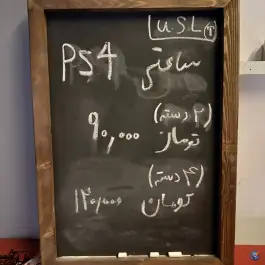 U.S.L T
ساعتی PS4
(۲ دسته)
۹۰,۰۰۰ تومان
(۴ دسته)
۱۴۰,۰۰۰ تومان